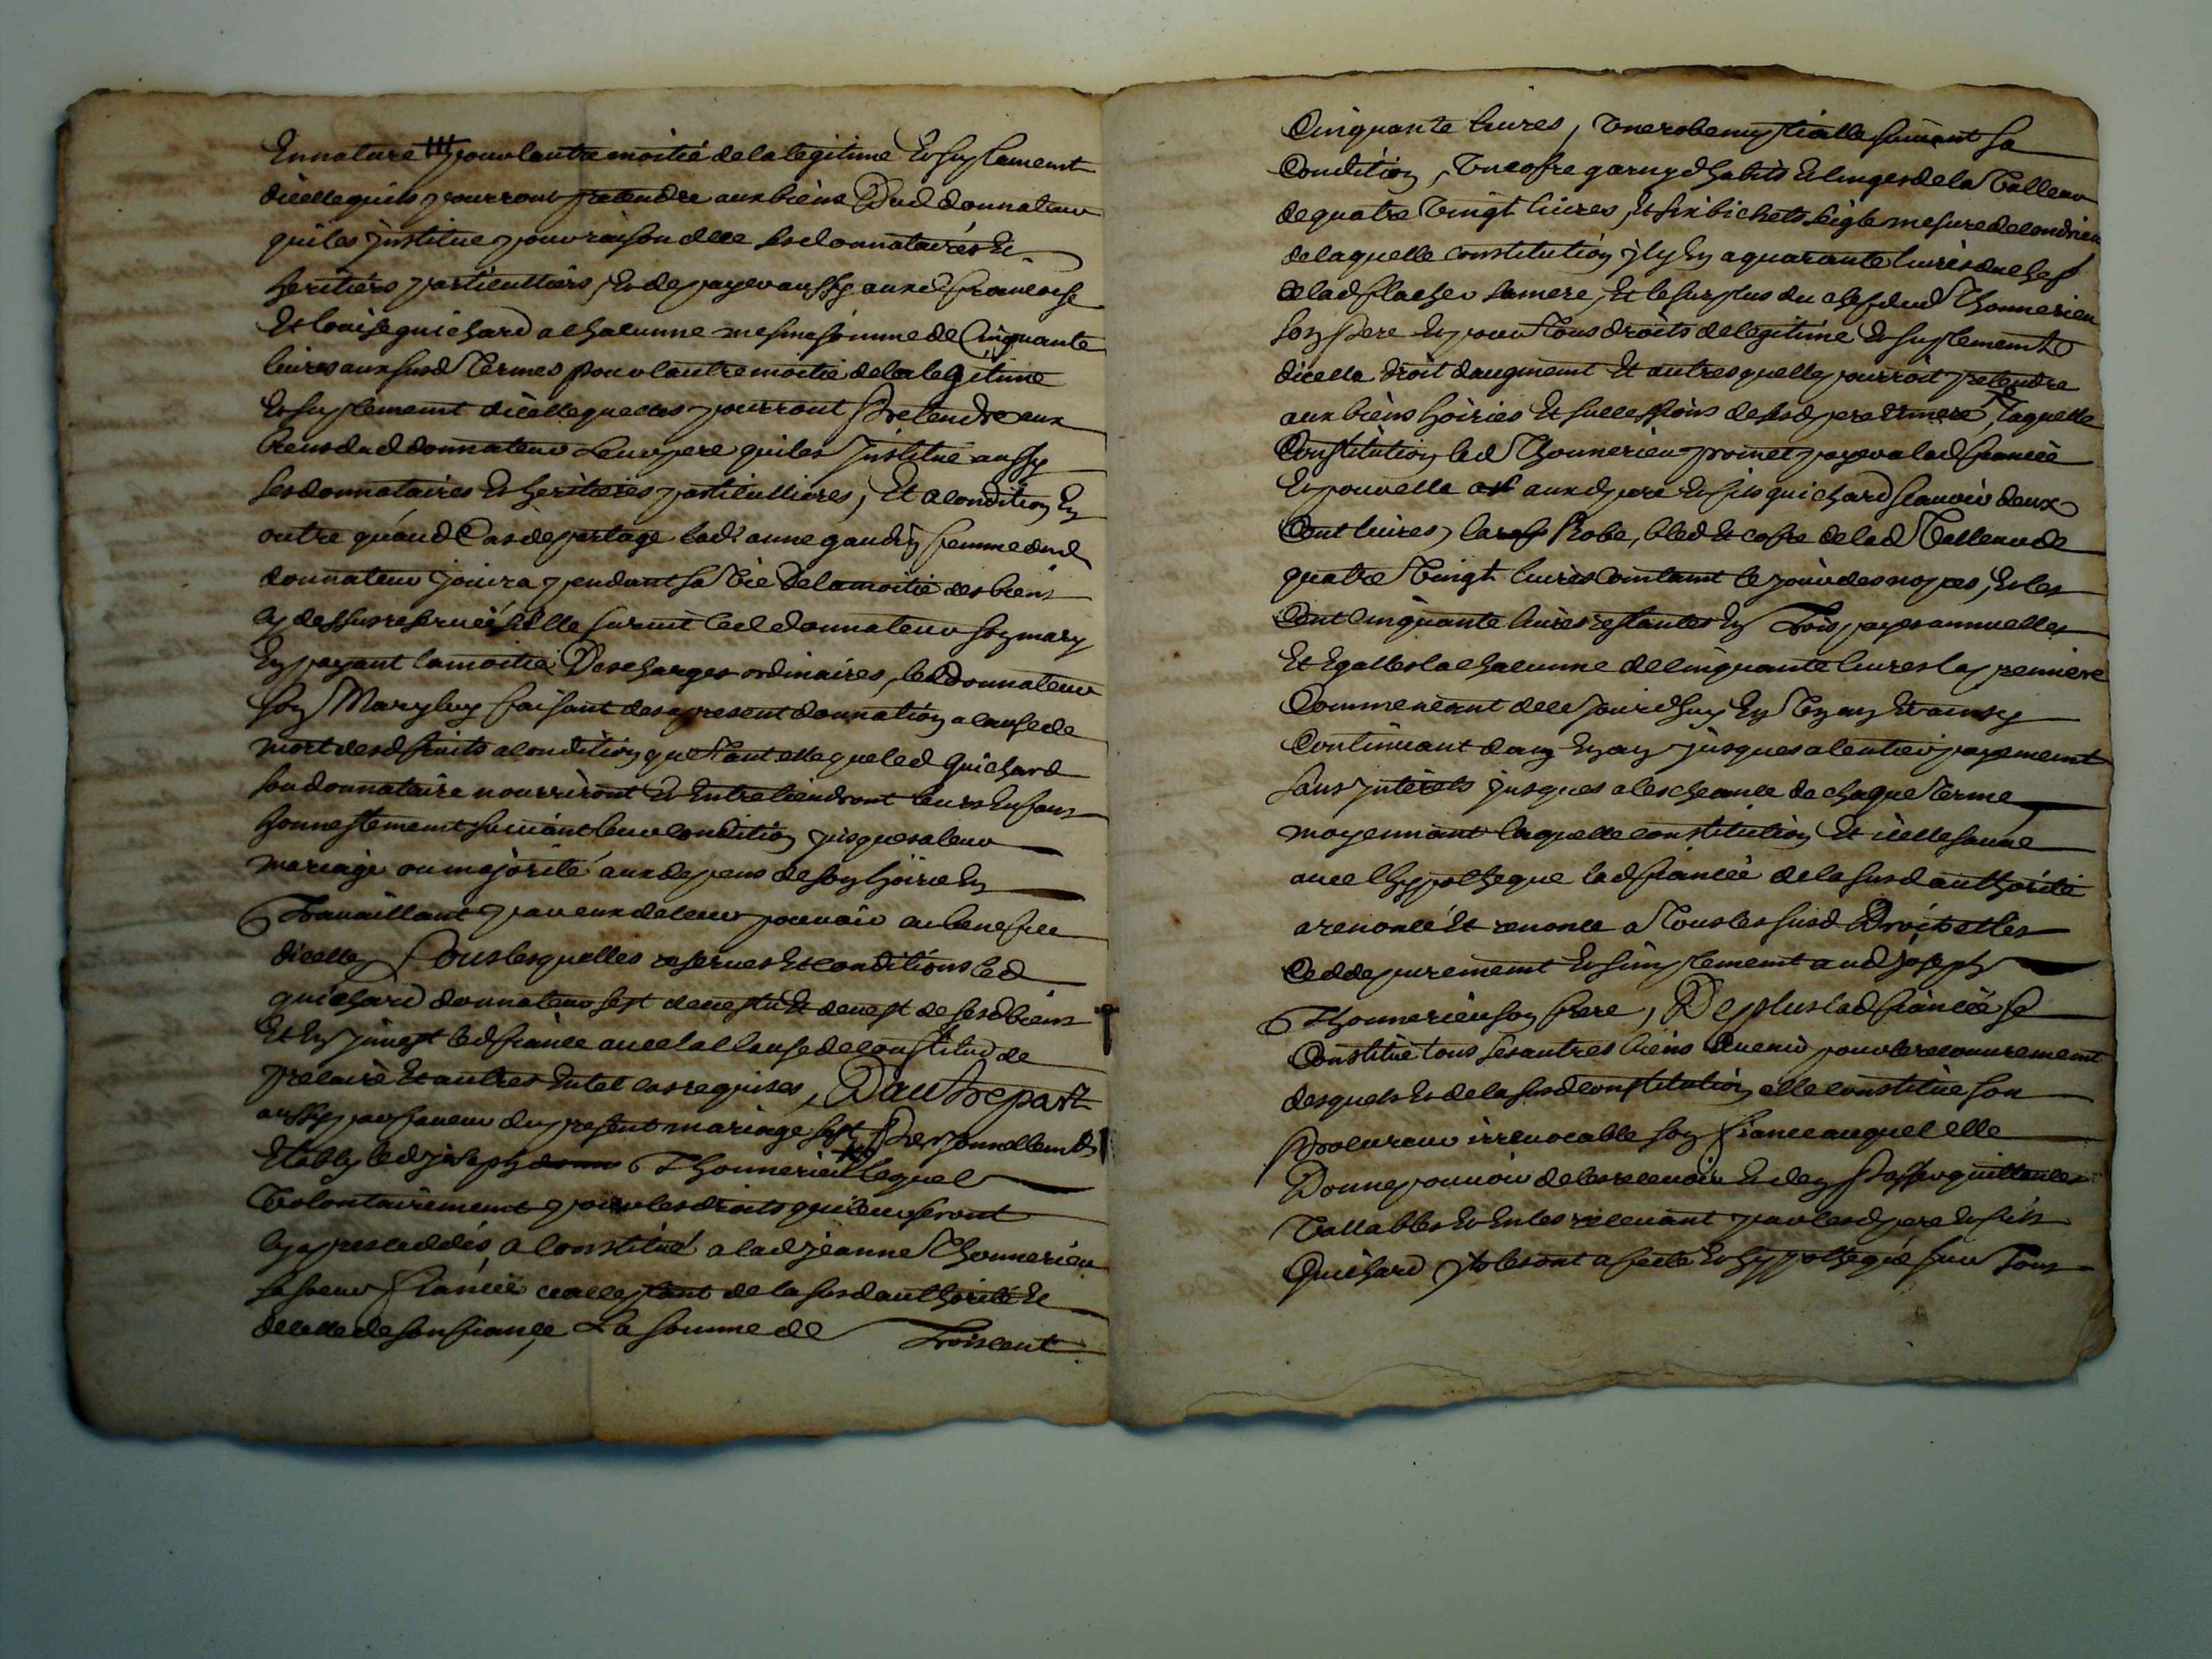 En nature pour lautre moitié de la legitime Et suplement
dicelle quils pourront pretendre aux biens Dud donnateur
quil les institue pour raison dece ses donnataires Et
heritiers particulliers, Et de payer aussy auxd francoise
Et louise guichard a chacunne mesme somme de Cinquante
livres aux susd Termes pour lautre moitié de la legitime
Et suplement dicelle quelles pourront Pretendre aux
biens dud donnateur Leur pere quil les Institue aussy
ses donnataires Et heritieres particullieres, Et a Condition En
outre quaud Cas de partage lad anne gaudin femme dud
donnateur jouira pendant sa Vie De la moitié des biens
cy dessus reservés si Elle survit led donnateur son mary
En payant la moitié Des charges ordinaires, led Donnateur
son Mary luy faisant des a present donnation a cause de
mort desd fruits a condition que Tant elle que led Guichard
son donnataire nourriront Et Entretiendront leurs Enfans
honnestement suivant leur condition jusques a leur
mariage ou majorité aux depens de son hoirie En
Travaillant par eux de leur pouvoir au benefice
dicelle, Sous lesquelles reserves Et conditions led
guichard donnateur sest devestu Et devest de sesd biens
Et En jnvest led fiancé avec la clause de constitud de
precaire Et autres En tel cas requises, D'autre part
aussy par faveur du present mariage sest Personnellemt
Etably led joseph Thonnerieu lequel
Volontairement pour les droits qui luy seront
cy apres ceddés a Constitué a lad jeanne Thonnerieu
sa soeur fiancée icelle Estant de la susd authorité Et
de celle de son fiancé, La somme de
Trois cent
Cinquante livres, Une robe nuptialle suivant sa
Condition, Un cofre garny d habits Et linges de la Valleur
de quatre Vingt livres, Et six bichets seigle mesure de condrieu
de laquelle constitution jl y En a quarante livres du chef
de lad flacher sa mere, Et le surplus du chef dud Thonnerieu
son Pere Et pour Tous droits de legitime Et suplement
dicelle droit daugment Et autres quelle pourroit pretendre
aux biens hoiries Et successions de sesd pere Et mere, Laquelle
Constitution led Thonnerieu promet payer a lad fiancée
Et pour elle auxd pere Et fils guichard scavoir deux
Cent livres, la Robe, bled Et cofre de lad Valleur de
quatre Vingt livres Contant le jour des nopces, Et les
Cent Cinquante livres restantes En Trois payes annuelles
Et Egalles la chacunne de Cinquante livres la premiere
Commencant de ce jourdhuy En Vn an Et ainsy
Continuant dan En an jusques a lentier payement
sans jnterets jusques a lescheance de chaque Terme
moyennant laquelle constitution Et icelle sauve
avec lhyppotheque lad fiancée de la susd authorité
a renoncé Et renonce a Tous les susd Droits et les
Cedde purement Et simplement aud joseph
Thonnerieu son frere, De plus lad fiancée se
Constitue tous ses autres biens avenir pour le recouvrement
desquels Et de la susd constitution elle constitue son
Procureur irrevocable son fiancé auquel elle
Donne pouvoir de les recevoir Et den Passer quittances
Vallables Et En les recevant par lesd pere Et fils
Guichard jls les ont affecté Et hyppothequé sur Tous